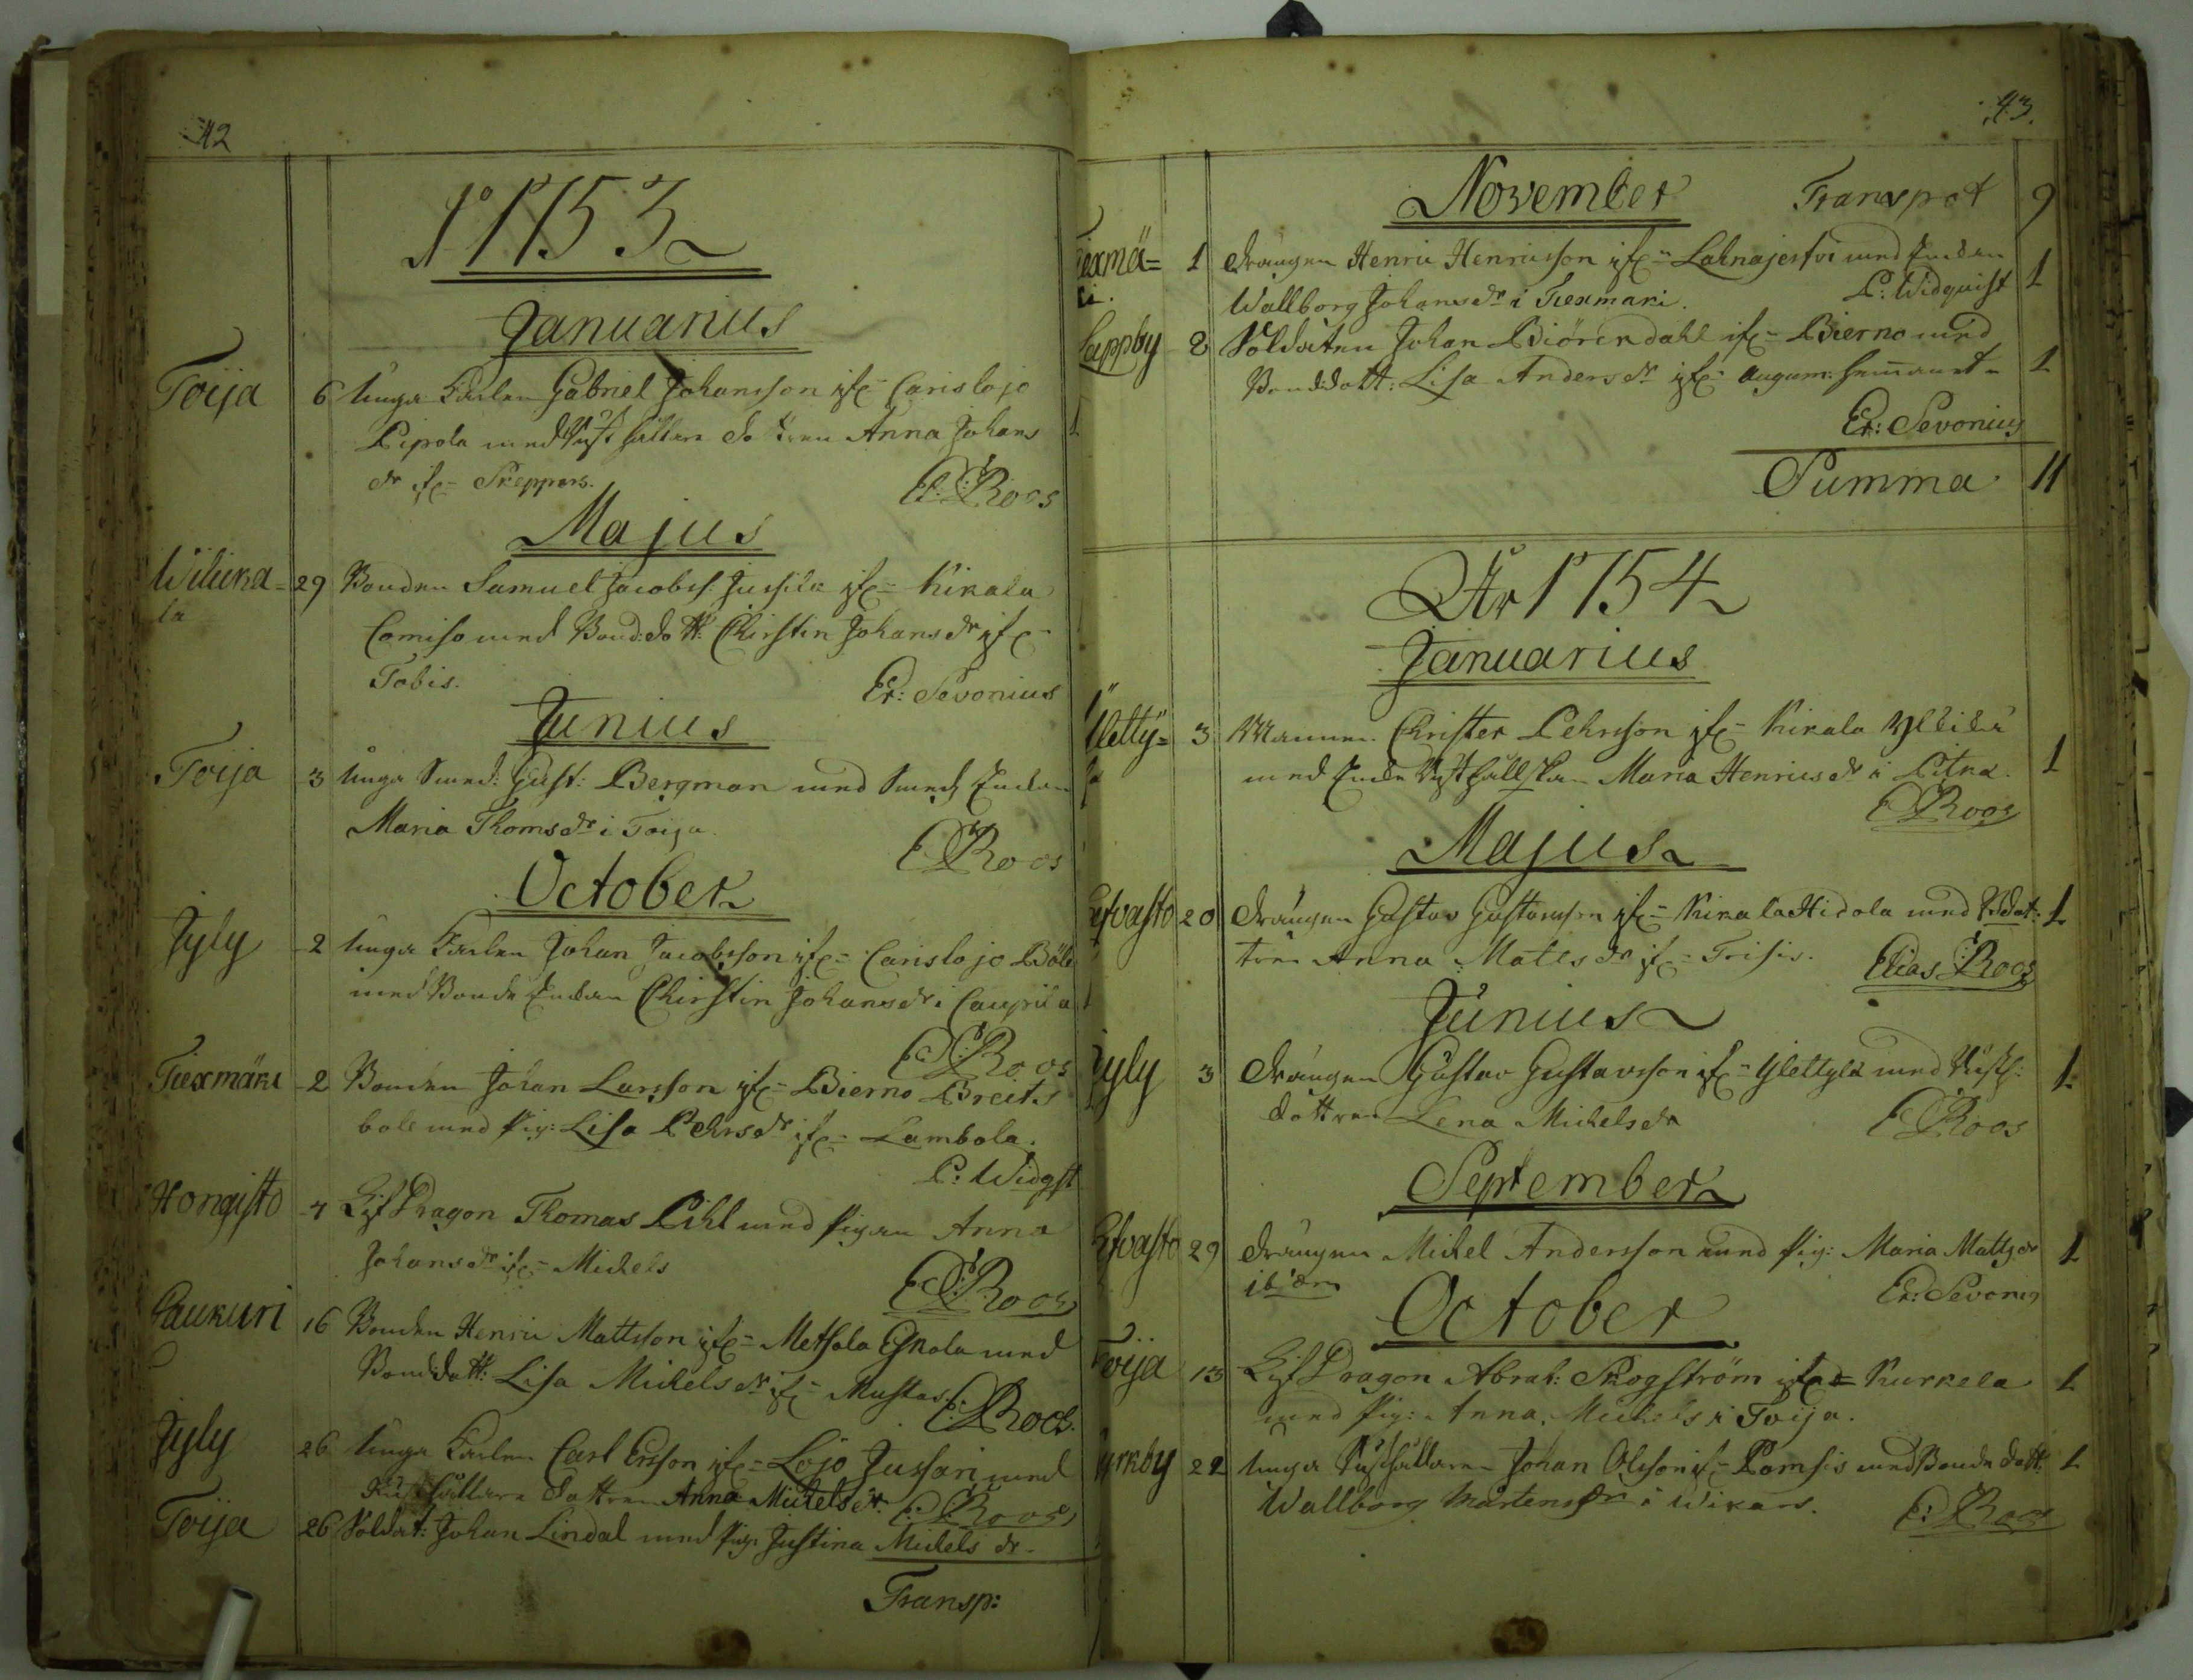 42
År 1753
Januarius
Toija 6 Unga Karlen Gabriel Johansson ifr. Carislojo
Pipola med Rusthållare dottren Anna Johans 1
dr ifr. Skeppars. E: Roos
Majus
Wiluka= 29 Bonden Samuel Jacobss: Jussila ifr. Kikala
la Comiso med Bond: dott: Christin Johans dr ifr.
Tobis. Er: Sevonius
Junius
Toija 3 Unga Smed: Gust: Bergman med Smeds Enkan
Maria Thoms dr i Toija. E Roos
October
Jyly 2 Unga Karlen Johan Jacobsson ifr. Carislojo Böle
med Bonde Enkan Christin Johans dr i Caupila 1
E: Roos
Tiexmäki 2 Bonden Johan Larsson ifr. Bierno Breits
bole med Pig: Lisa Pehrs dr ifr. Lambola.
P: Widqst
Hongisto 4 Lif Dragon Thomas Pihl med Pigan Anna
Johans dr ifr. Michels E: Roos
Laukuri 16 Bonden Henric Mattsson ifr. Metsola Eskola med
Bond: dott: Lisa Michels dr ifr. Mustas. E: Roos.
Jyly 26 Unga Karlen Carl Ersson ifr. Lojo Jussari med
Rusthållare Dottren Anna Michels dr. E: Roos
Toija 26 Soldat: Johan Lindal med Pig: Justina Michels dr.
Transp:
43.
November Transpot 9
Tiexmä= 1 Drängen Henric Henricsson ifr. Lahnajerfvi med Enkan
ki. Wallborg Johans dr i Tiexmäki. P: Widquist 1
Lappby 2 Soldaten Johan Biörendahl ifr. Bierno med
Bond: dott: Lisa Anders dr ifr. Augum: hemanet 1
Er: Sevonius
Summa 11
År 1754
Januarius
Yletty= 3 Mannen Christer Pehrsson ifr. Kikala Yltilä
lä med Enka Rusthållskan Maria Henrics dr i Pitka. 1
E Roos
Majus
Elfvasto 20 Drängen Gustav Gustavsson ifr. Kikala Hidola med Bdot: 1
tren Anna Mats dr ifr. Frisis. Elias Roos
Junius
Jyly 3 Drängen Gustav Gustavsson ifr. Ylettylä med Rusth: 1
dottren Lena Michels dr E Roos
September
Elfvasto 29 Drängen Michel Andersson med Pig: Maria Matts dr 1
ibidem Er: Sevonis
October
Toija 13 Lif Dragon Abrah: Skogström ifrå Kurkela 1
med Pig: Anna Michels i Toija.
Kyrkby 22 Unga Rusthållaren Johan Olsson ifr. Pomsis med Bonde dott: 1
Wallborg Mårtens dr i Wikars. E: Roos